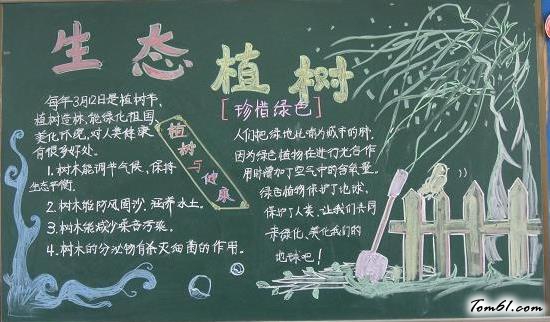 生态植树
每年3月12日是植树节,
植树造林,能绿化祖国,
美化环境,对人类健康
有很多好处。
1.树木能调节气候,保持
生态平衡。
2.树木能防风固沙,涵养水土。
3.树木能减少噪音污染。
4.树木的分泌物有杀灭细菌的作用。
植树与健康
[珍惜绿色]
人们把绿地比喻为城市的肺,
因为绿色植物在进行光合作
用时增加了空气中的含氧量。
绿色植物保护了地球,
保护了人类,让我们共同
来绿化、美化我们的
地球吧!
Tom61.com